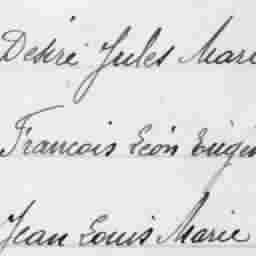 Désiré Jules Mari
François Léon Eugèn
Jean Louis Marie